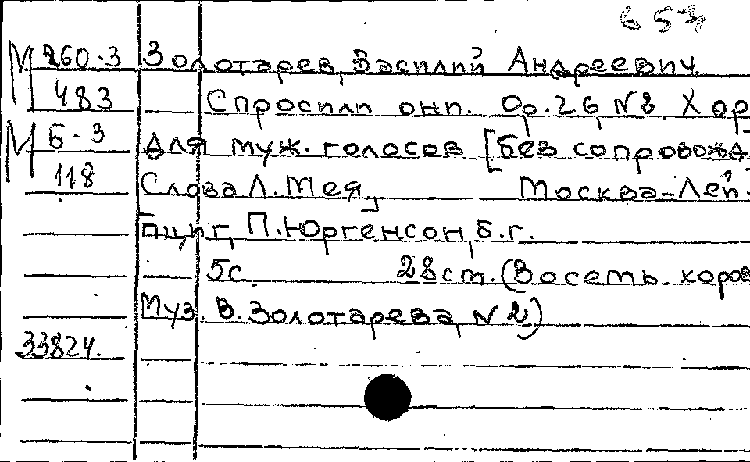 653
М 260-3 Золотарев, Василий Андреевич
483 Спросили они. Ор. 26, №2. Хор
М Б-3 для муж. голосов [без сопровожд.
118 Слова Л. Мея, Москва-Лей
пциг, П. Юргенсон, б.г.
5с. 28ст. (Восемь хоров
Муз. В. Золотарева, №2)
33824.